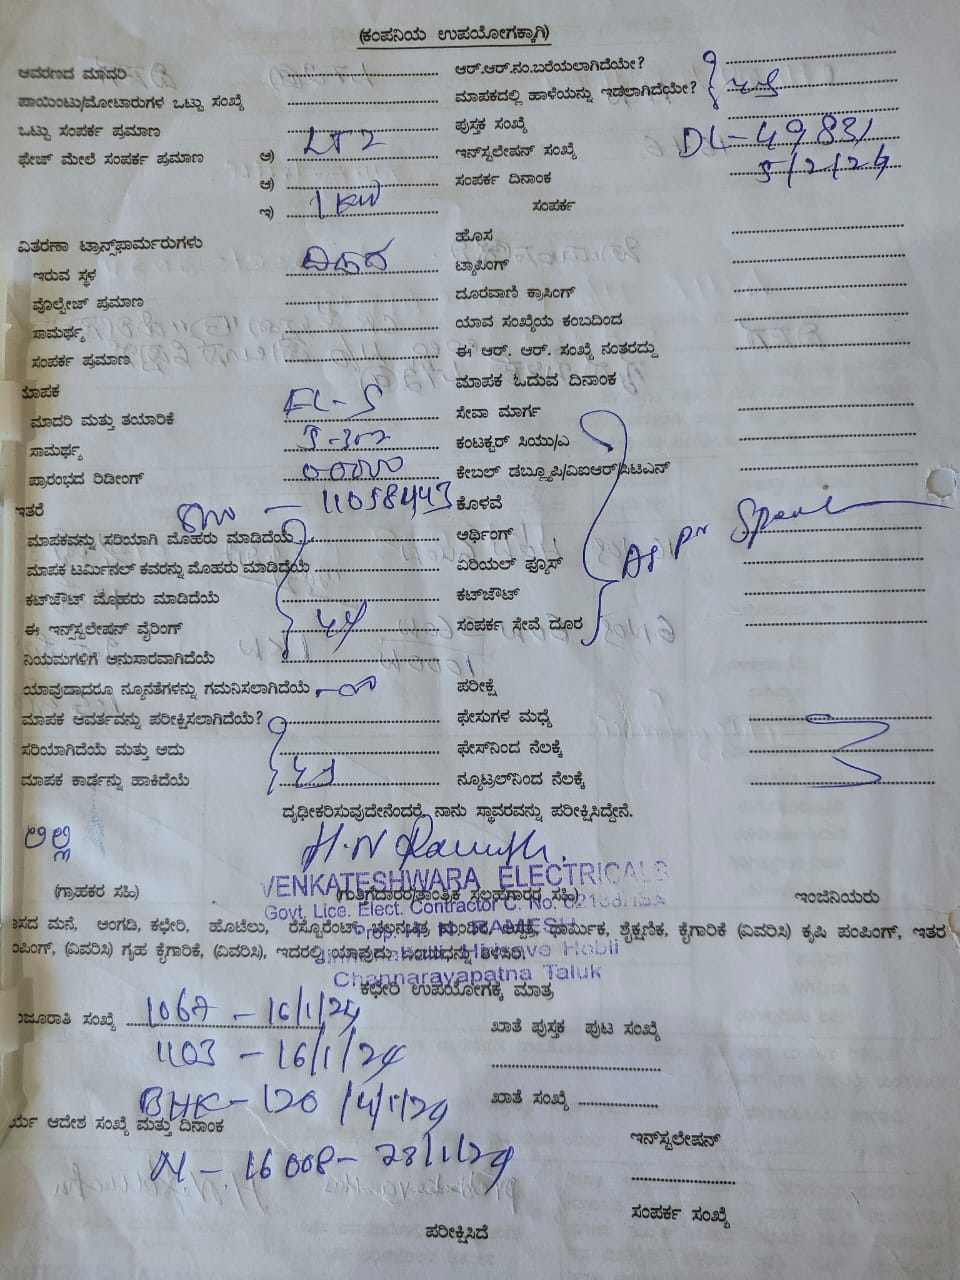 (ಕಂಪನಿಯ ಉಪಯೋಗಕ್ಕಾಗಿ)
ಆವರಣದ ಮಾದರಿ
ಆರ್.ಆರ್.ನಂ.ಬರೆಯಲಾಗಿದೆಯೇ?
ಪಾಯಿಂಟು/ಮೋಟಾರುಗಳ ಒಟ್ಟು ಸಂಖ್ಯೆ
ಮಾಪಕದಲ್ಲಿ ಹಾಳೆಯನ್ನು ಇಡಲಾಗಿದೆಯೇ?
ಒಟ್ಟು ಸಂಪರ್ಕ ಪ್ರಮಾಣ
ಪುಸ್ತಕ ಸಂಖ್ಯೆ
ಫೇಜ್ ಮೇಲೆ ಸಂಪರ್ಕ ಪ್ರಮಾಣ ಅ) LT2
ಇನ್‌ಸ್ಟಲೇಷನ್ ಸಂಖ್ಯೆ DL-49831
ಆ)
ಸಂಪರ್ಕ ದಿನಾಂಕ 5/2/24
ಇ) 1KW
ಸಂಪರ್ಕ
ವಿತರಣಾ ಟ್ರಾನ್ಸ್‌ಫಾರ್ಮರುಗಳು
ಹೊಸ
ಇರುವ ಸ್ಥಳ
ಟ್ಯಾಪಿಂಗ್
ವೊಲ್ಟೇಜ್ ಪ್ರಮಾಣ
ದೂರವಾಣಿ ಕ್ರಾಸಿಂಗ್
ಸಾಮರ್ಥ್ಯ
ಯಾವ ಸಂಖ್ಯೆಯ ಕಂಬದಿಂದ
ಸಂಪರ್ಕ ಪ್ರಮಾಣ
ಈ ಆರ್. ಆರ್. ಸಂಖ್ಯೆ ನಂತರದ್ದು
ಮಾಪಕ
ಮಾಪಕ ಓದುವ ದಿನಾಂಕ
ಮಾದರಿ ಮತ್ತು ತಯಾರಿಕೆ
ಸೇವಾ ಮಾರ್ಗ
ಸಾಮರ್ಥ್ಯ
ಕಂಟಕ್ಟರ್ ಸಿಯು/ಎ
ಪ್ರಾರಂಭದ ರಿಡೀಂಗ್
ಕೇಬಲ್ ಡಬ್ಲ್ಯೂಪಿ/ವಿಐಆರ್/ಸಿಟಿಎನ್
ಇತರೆ 11058443
ಕೊಳವೆ
ಮಾಪಕವನ್ನು ಸರಿಯಾಗಿ ಮೊಹರು ಮಾಡಿದೆಯೆ
ಅರ್ಥಿಂಗ್
ಮಾಪಕ ಟರ್ಮಿನಲ್ ಕವರನ್ನು ಮೊಹರು ಮಾಡಿದೆಯೆ
ಏರಿಯಲ್ ಫ್ಯೂಸ್
ಕಟ್‌ಔಟ್ ಮೊಹರು ಮಾಡಿದೆಯೆ
ಕಟ್‌ಔಟ್
ಈ ಇನ್ಸ್‌ಸ್ಟಲೇಷನ್ ವೈರಿಂಗ್
ಸಂಪರ್ಕ ಸೇವೆ ದೂರ
ನಿಯಮಗಳಿಗೆ ಅನುಸಾರವಾಗಿದೆಯೆ
ಯಾವುದಾದರೂ ನ್ಯೂನತೆಗಳನ್ನು ಗಮನಿಸಲಾಗಿದೆಯೆ
ಪರೀಕ್ಷೆ
ಮಾಪಕ ಆವರ್ತವನ್ನು ಪರೀಕ್ಷಿಸಲಾಗಿದೆಯೆ?
ಫೇಸುಗಳ ಮಧ್ಯೆ
ಸರಿಯಾಗಿದೆಯೆ ಮತ್ತು ಅದು
ಫೇಸ್‌ನಿಂದ ನೆಲಕ್ಕೆ
ಮಾಪಕ ಕಾರ್ಡನ್ನು ಹಾಕಿದೆಯೆ
ನ್ಯೂಟ್ರಲ್‌ನಿಂದ ನೆಲಕ್ಕೆ
ದೃಢೀಕರಿಸುವುದೇನೆಂದರೆ, ನಾನು ಸ್ಥಾವರವನ್ನು ಪರೀಕ್ಷಿಸಿದ್ದೇನೆ.
VENKATESHWARA ELECTRICALS
(ಗ್ರಾಹಕರ ಸಹಿ)
(ಗುತ್ತಿಗೆದಾರರ/ತಾಂತ್ರಿಕ ಸಲಹಗಾರರ ಸಹಿ)
ಇಂಜಿನಿಯರು
Govt. Lice. Elect. Contractor C. No.
ಮನೆ, ಅಂಗಡಿ, ಕಛೇರಿ, ಹೊಟೆಲು, ರೆಸ್ಟೊರೆಂಟ್, ಧಾರ್ಮಿಕ, ಶೈಕ್ಷಣಿಕ, ಕೈಗಾರಿಕೆ (ವಿವರಿಸಿ) ಕೃಷಿ ಪಂಪಿಂಗ್, ಇತರ
(ವಿವರಿಸಿ) ಗೃಹ ಕೈಗಾರಿಕೆ, (ವಿವರಿಸಿ), ಇದರಲ್ಲಿ ಯಾವುದು
Hobli
Channarayapatna Taluk
ಕಛೇರಿ ಉಪಯೋಗಕ್ಕೆ ಮಾತ್ರ
ಸಂಖ್ಯೆ 1067 - 16/1/24
ಖಾತೆ ಪುಸ್ತಕ ಪುಟ ಸಂಖ್ಯೆ
1103 - 16/1/24
BHK - 120 /4/1/24
ಖಾತೆ ಸಂಖ್ಯೆ
ಆದೇಶ ಸಂಖ್ಯೆ ಮತ್ತು ದಿನಾಂಕ
ಇನ್‌ಸ್ಟಲೇಷನ್
16008 - 23/1/24
ಸಂಪರ್ಕ ಸಂಖ್ಯೆ
ಪರೀಕ್ಷಿಸಿದೆ